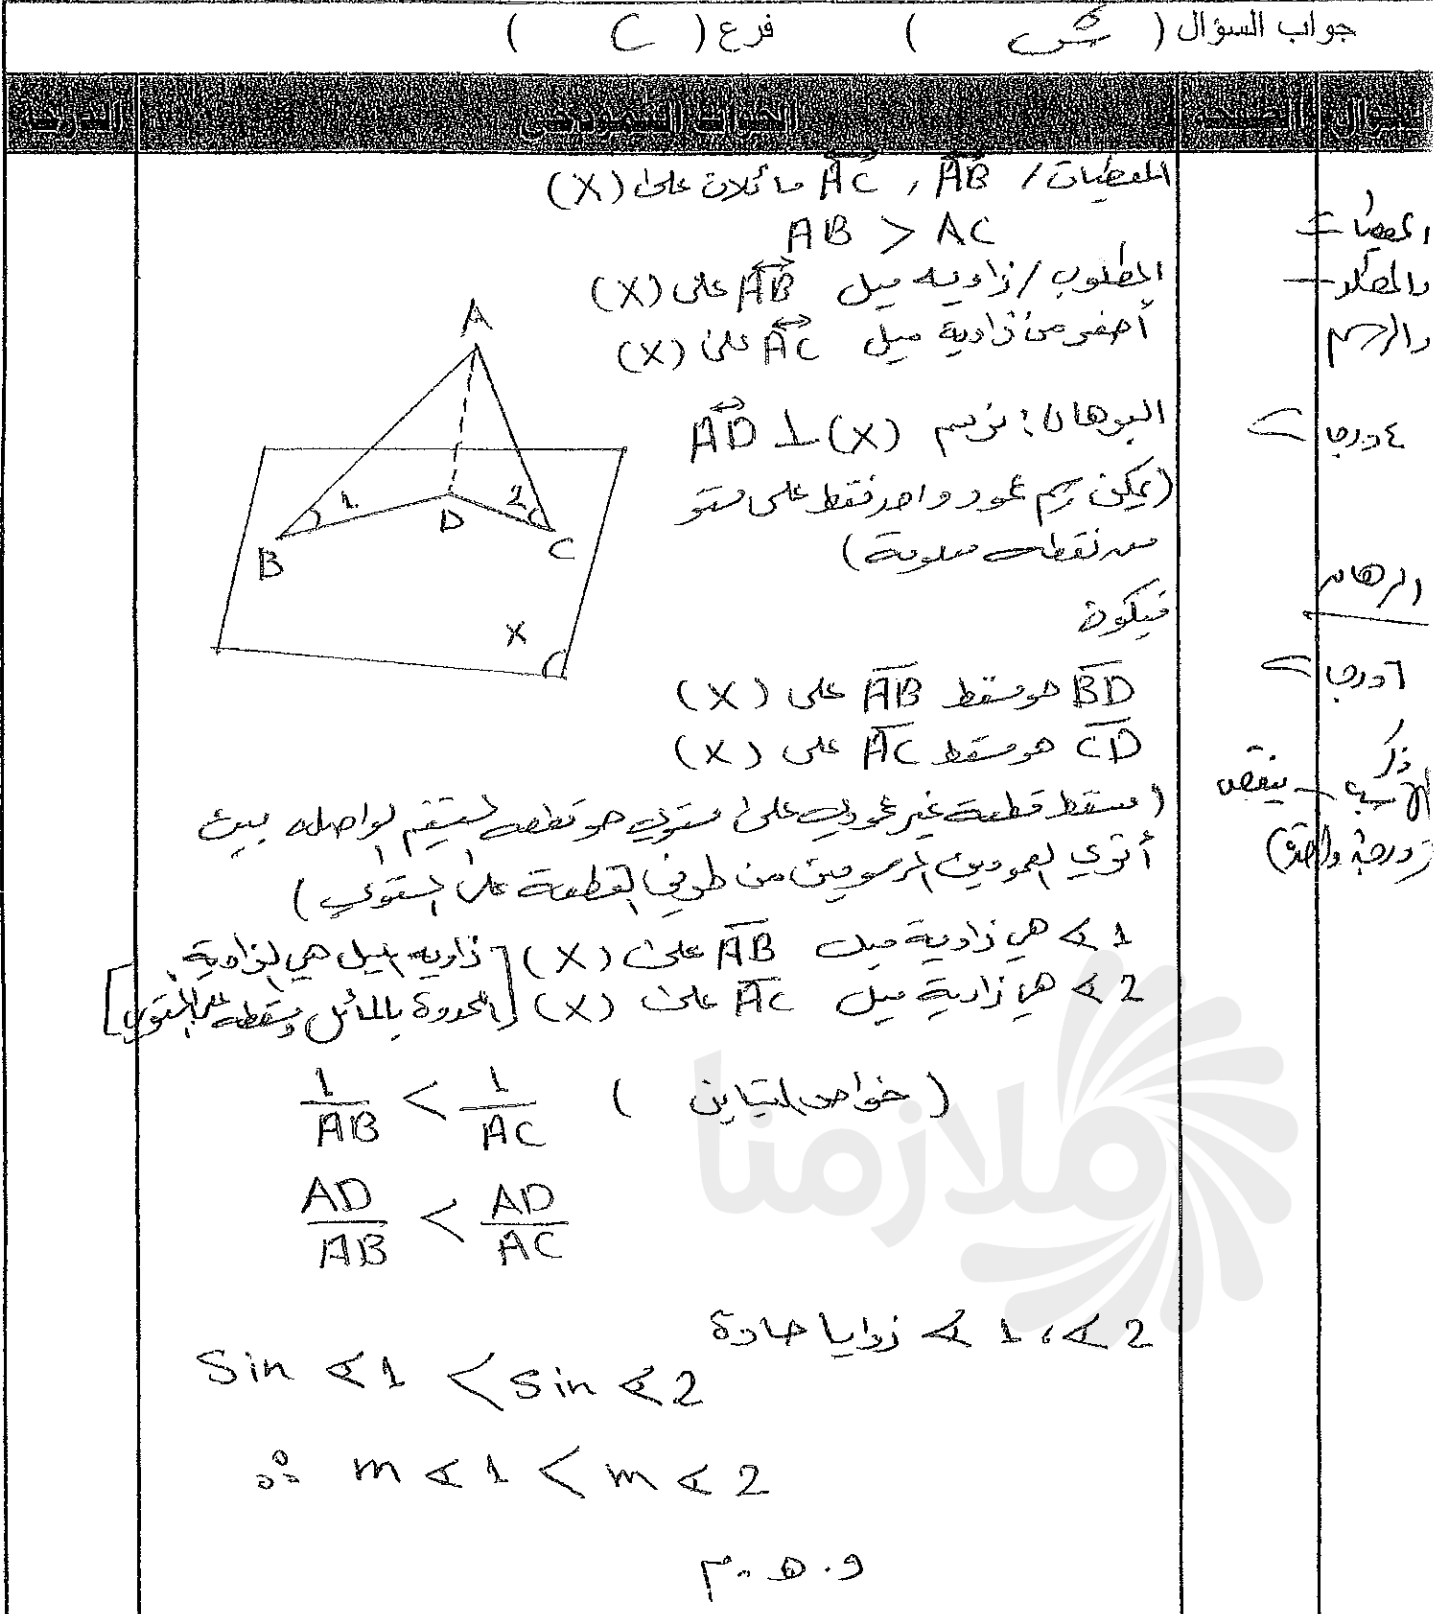 جواب السؤال ( ) فرع ( C )
السؤال الصفحة الجواب النموذجي الدرجة
المعطيات / AB , AC مائلان على (X)
AB > AC
المطلوب / زاوية ميل AB على (X)
أصغر من زاوية ميل AC على (X)
البرهان : نرسم AD ⊥ (X)
(يمكن رسم عمود واحد فقط على مستو
من نقطة معلومة)
فيكون
BD هو مسقط AB على (X)
CD هو مسقط AC على (X)
(مسقط قطعة غير عمودية على مستوي هو قطعة المستقيم الواصلة بين
أثري العمودين المرسومين من طرفي القطعة على المستوي)
∢1 هي زاوية ميل AB على (X) [زاوية الميل هي الزاوية
∢2 هي زاوية ميل AC على (X) المحددة بالمائل ومسقطه على المستوي]
1/AB < 1/AC (خواص التباين)
AD/AB < AD/AC
∢1 ، ∢2 زوايا حادة
Sin ∢1 < Sin ∢2
∴ m∢1 < m∢2
و . ه . م
A
B
1
D
2
C
X
المعطيات
والمطلوب
والرسم
٤ درجات
البرهان
٦ درجات
ذكر
ينقص
درجة واحدة)
ملازمنا